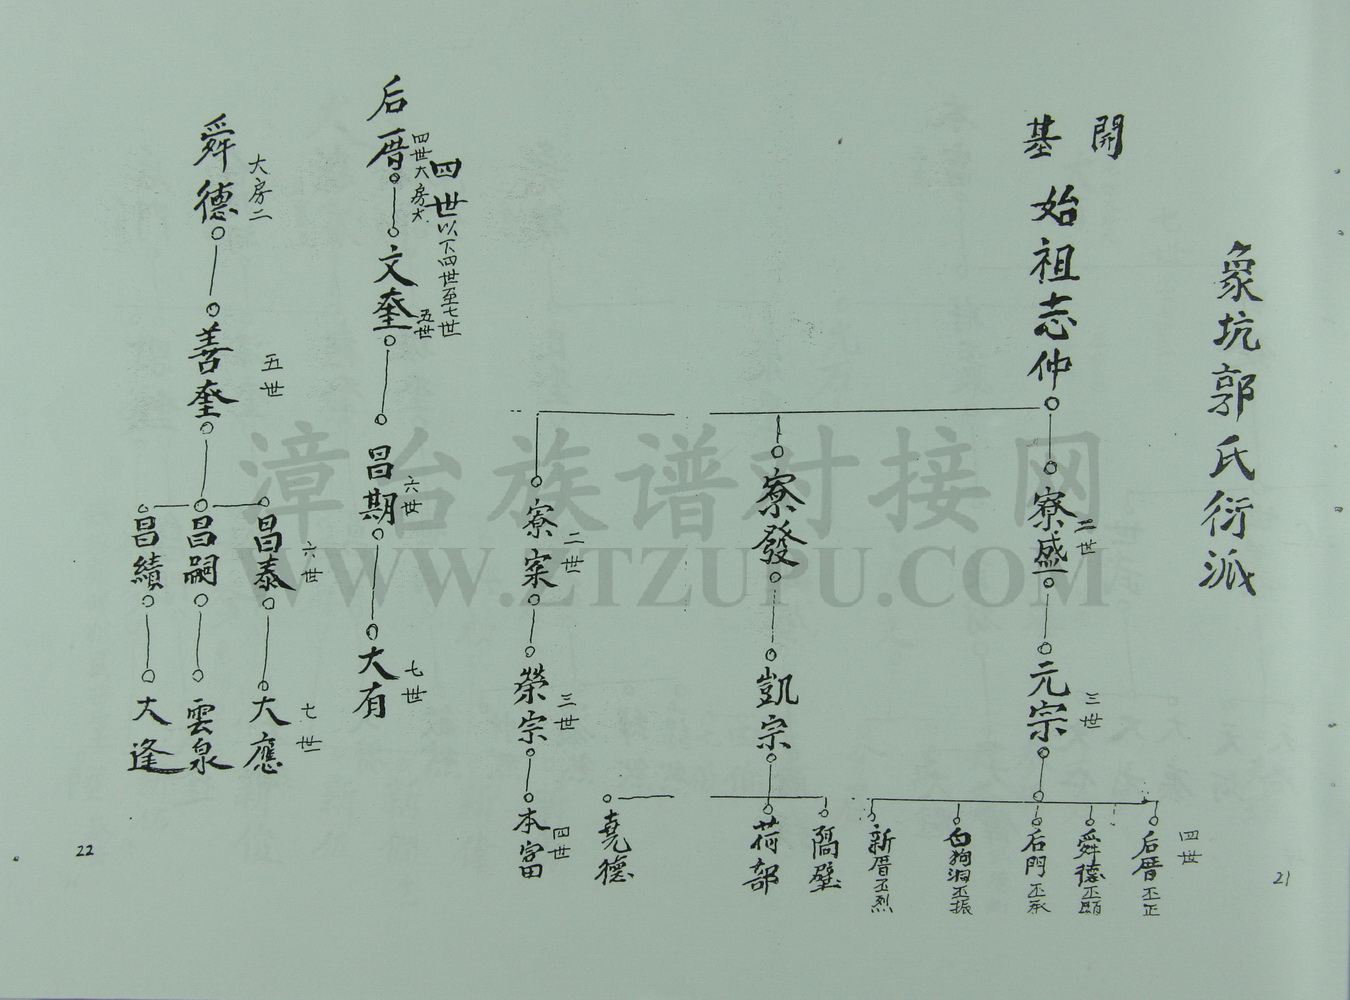 象坑郭氏衍派
開
基
始祖志仲
二世
寮盛
寮發
二世
寮案
三世
元宗
凱宗
三世
榮宗
四世
后厝丕正
舜德丕顕
后門丕承
白狗洞丕振
新厝丕烈
隔壁
荷部
堯德
四世
本富
21
四世以下四世至七世
四世大房大
后厝
五世
文奎
六世
昌期
七世
大有
大房二
舜德
五世
善奎
六世
昌泰
昌嗣
昌績
七世
大應
雲泉
大逢
22
漳台族谱对接网
WWW.ZTZUPU.COM